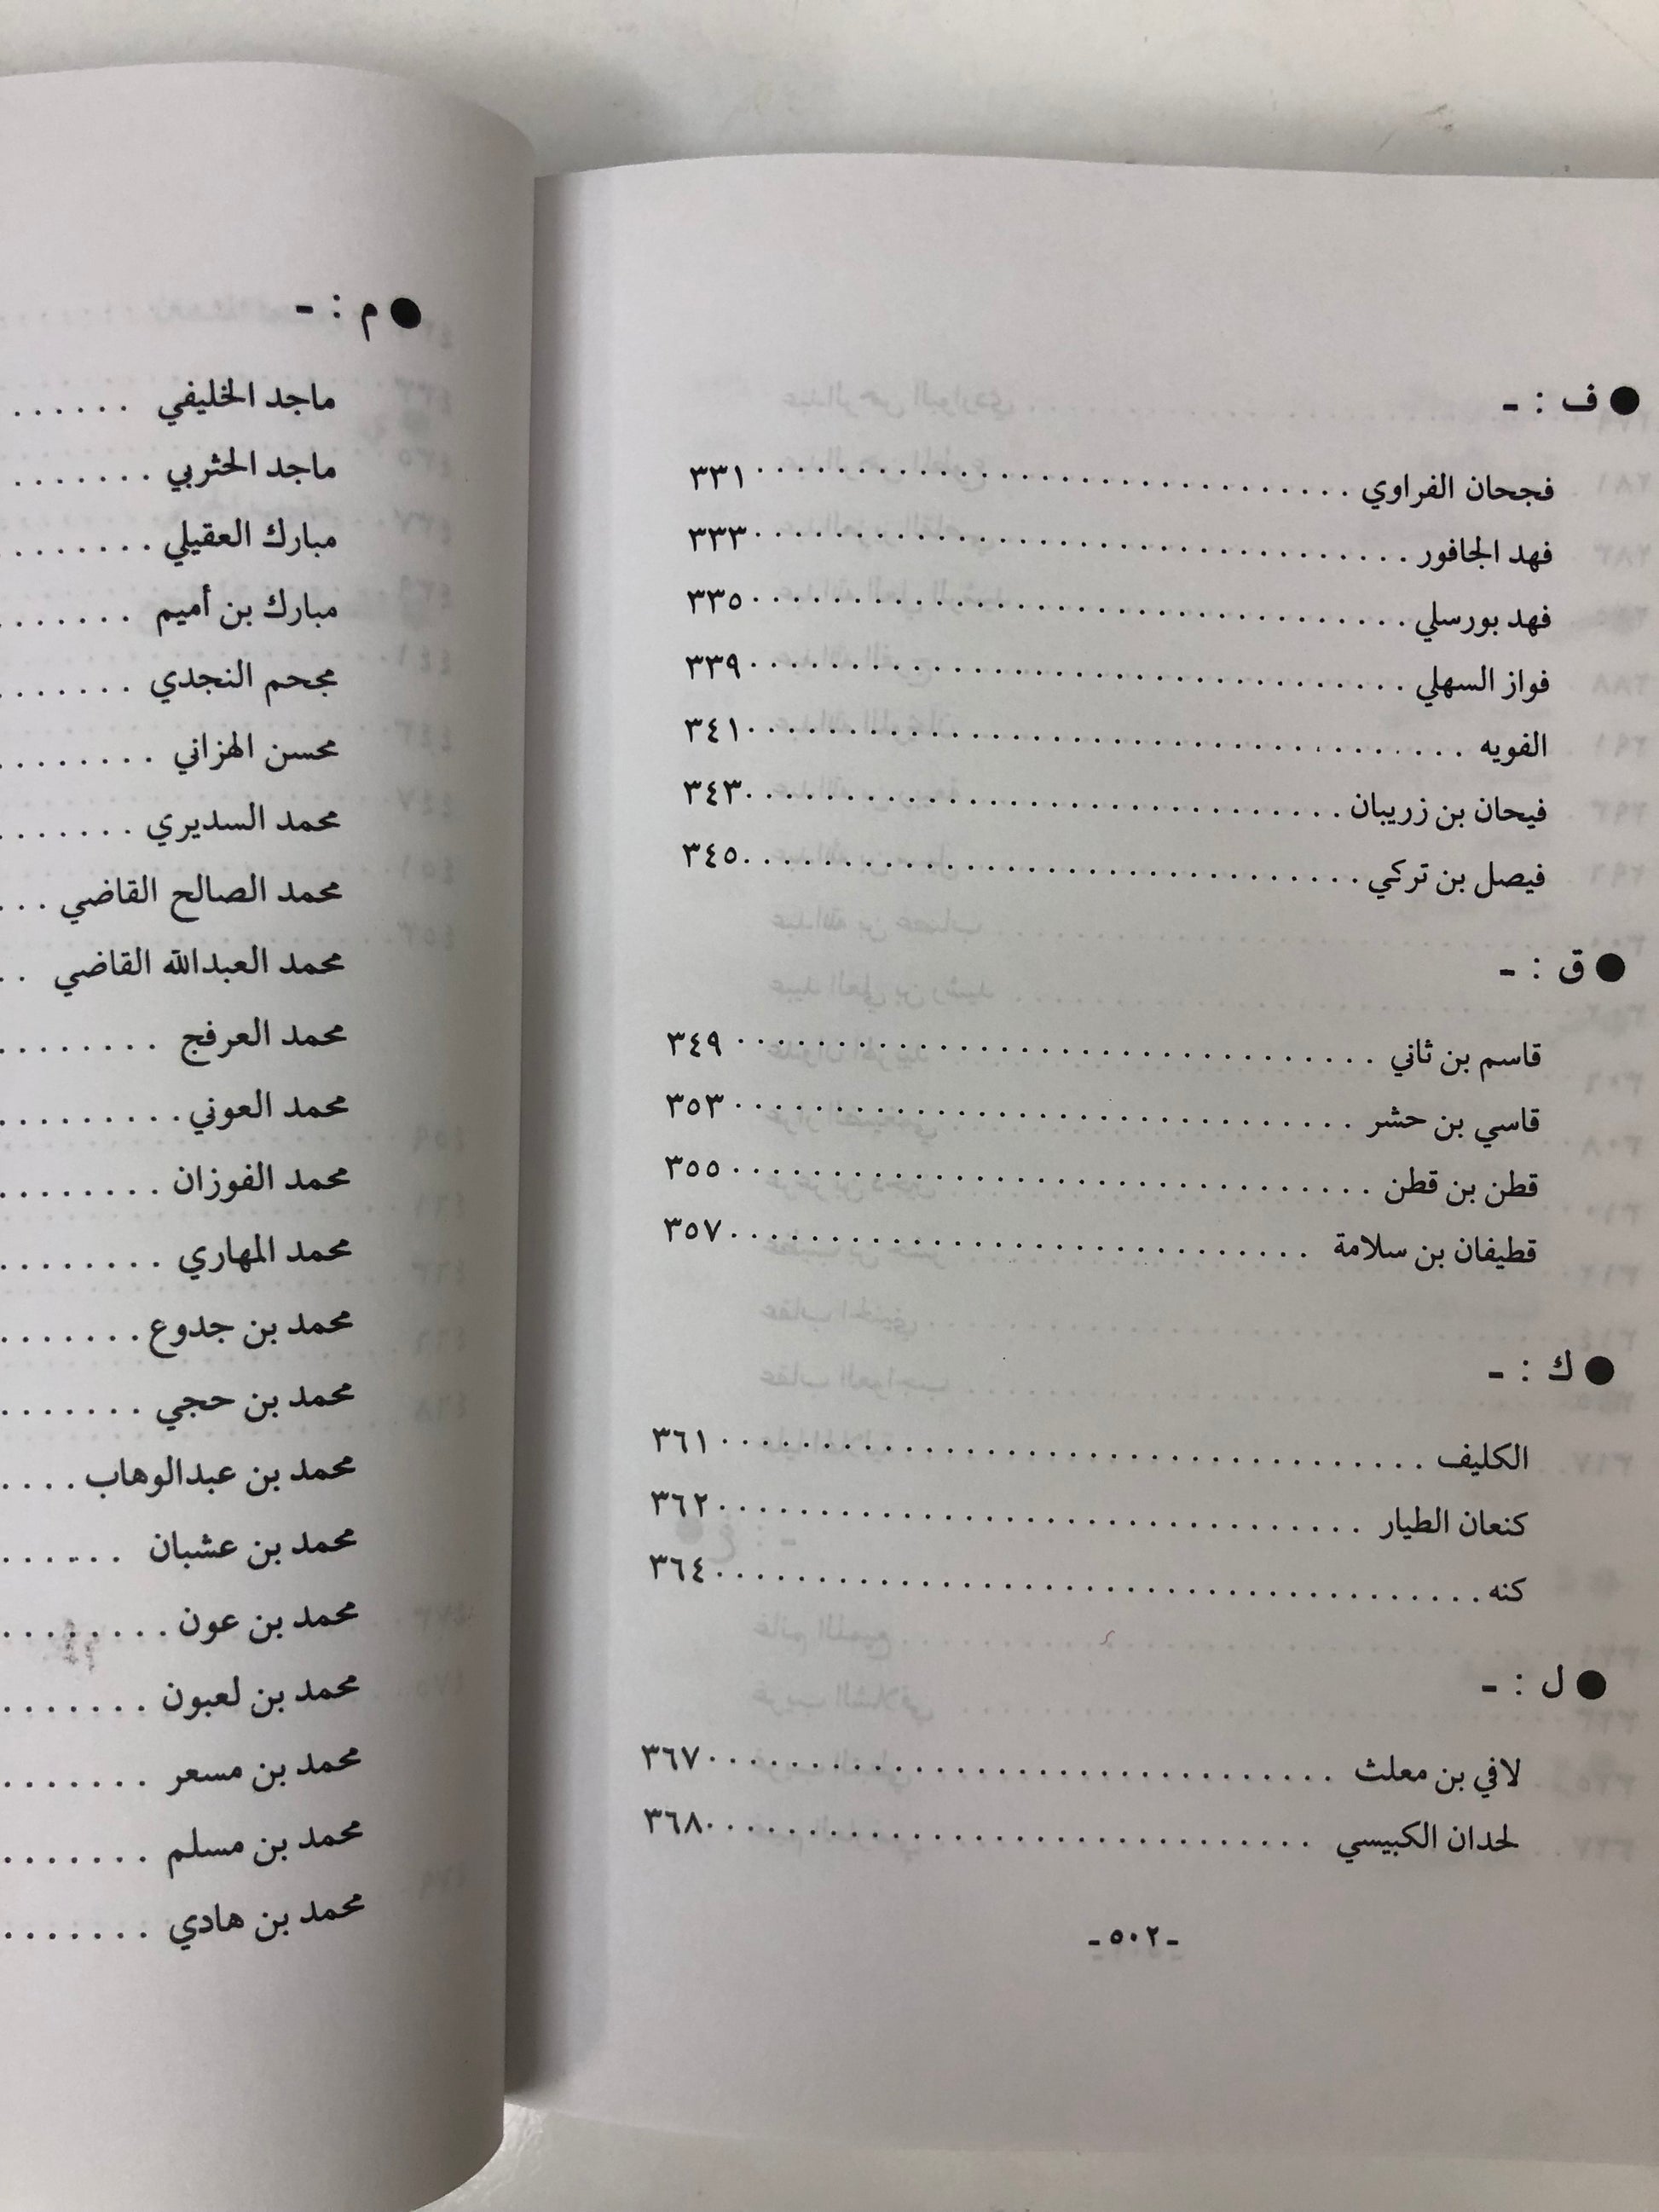 ● ف : -
فجحان الفراوي ........ ٣٣١
فهد الجافور ........ ٣٣٣
فهد بورسلي ........ ٣٣٥
فواز السهلي ........ ٣٣٩
الفويه ........ ٣٤١
فيحان بن زريبان ........ ٣٤٣
فيصل بن تركي ........ ٣٤٥
● ق : -
قاسم بن ثاني ........ ٣٤٩
قاسي بن حشر ........ ٣٥٣
قطن بن قطن ........ ٣٥٥
قطيفان بن سلامة ........ ٣٥٧
● ك : -
الكليف ........ ٣٦١
كنعان الطيار ........ ٣٦٢
كنه ........ ٣٦٤
● ل : -
لافي بن معلث ........ ٣٦٧
لحدان الكبيسي ........ ٣٦٨
- ٥٠٢ -
● م : -
ماجد الخليفي ......
ماجد الحثربي .......
مبارك العقيلي ........
مبارك بن أميم .......
مجحم النجدي .......
محسن الهزاني ........
محمد السديري .......
محمد الصالح القاضي ...
محمد العبدالله القاضي ..
محمد العرفج ........
محمد العوني .........
محمد الفوزان ........
محمد المهاري ........
محمد بن جدوع .......
محمد بن حجي .......
محمد بن عبدالوهاب ....
محمد بن عشبان ......
محمد بن عون ........
محمد بن لعبون .......
محمد بن مسعر .......
محمد بن مسلم .......
محمد بن هادي .......